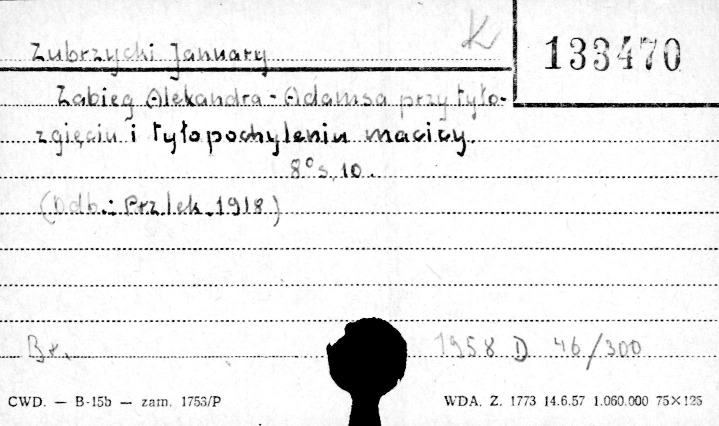 K
133470
Zubrzycki January
Zabieg Alexandra-Adamsa przy tyło-
zgięciu i tyłopochyleniu macicy.
8° s. 10.
(Odb.: Prz lek. 1918)
Br.
1958 D 46/300
CWD. — B-15b — zam. 1753/P
WDA. Z. 1773 14.6.57 1.060.000 75×125